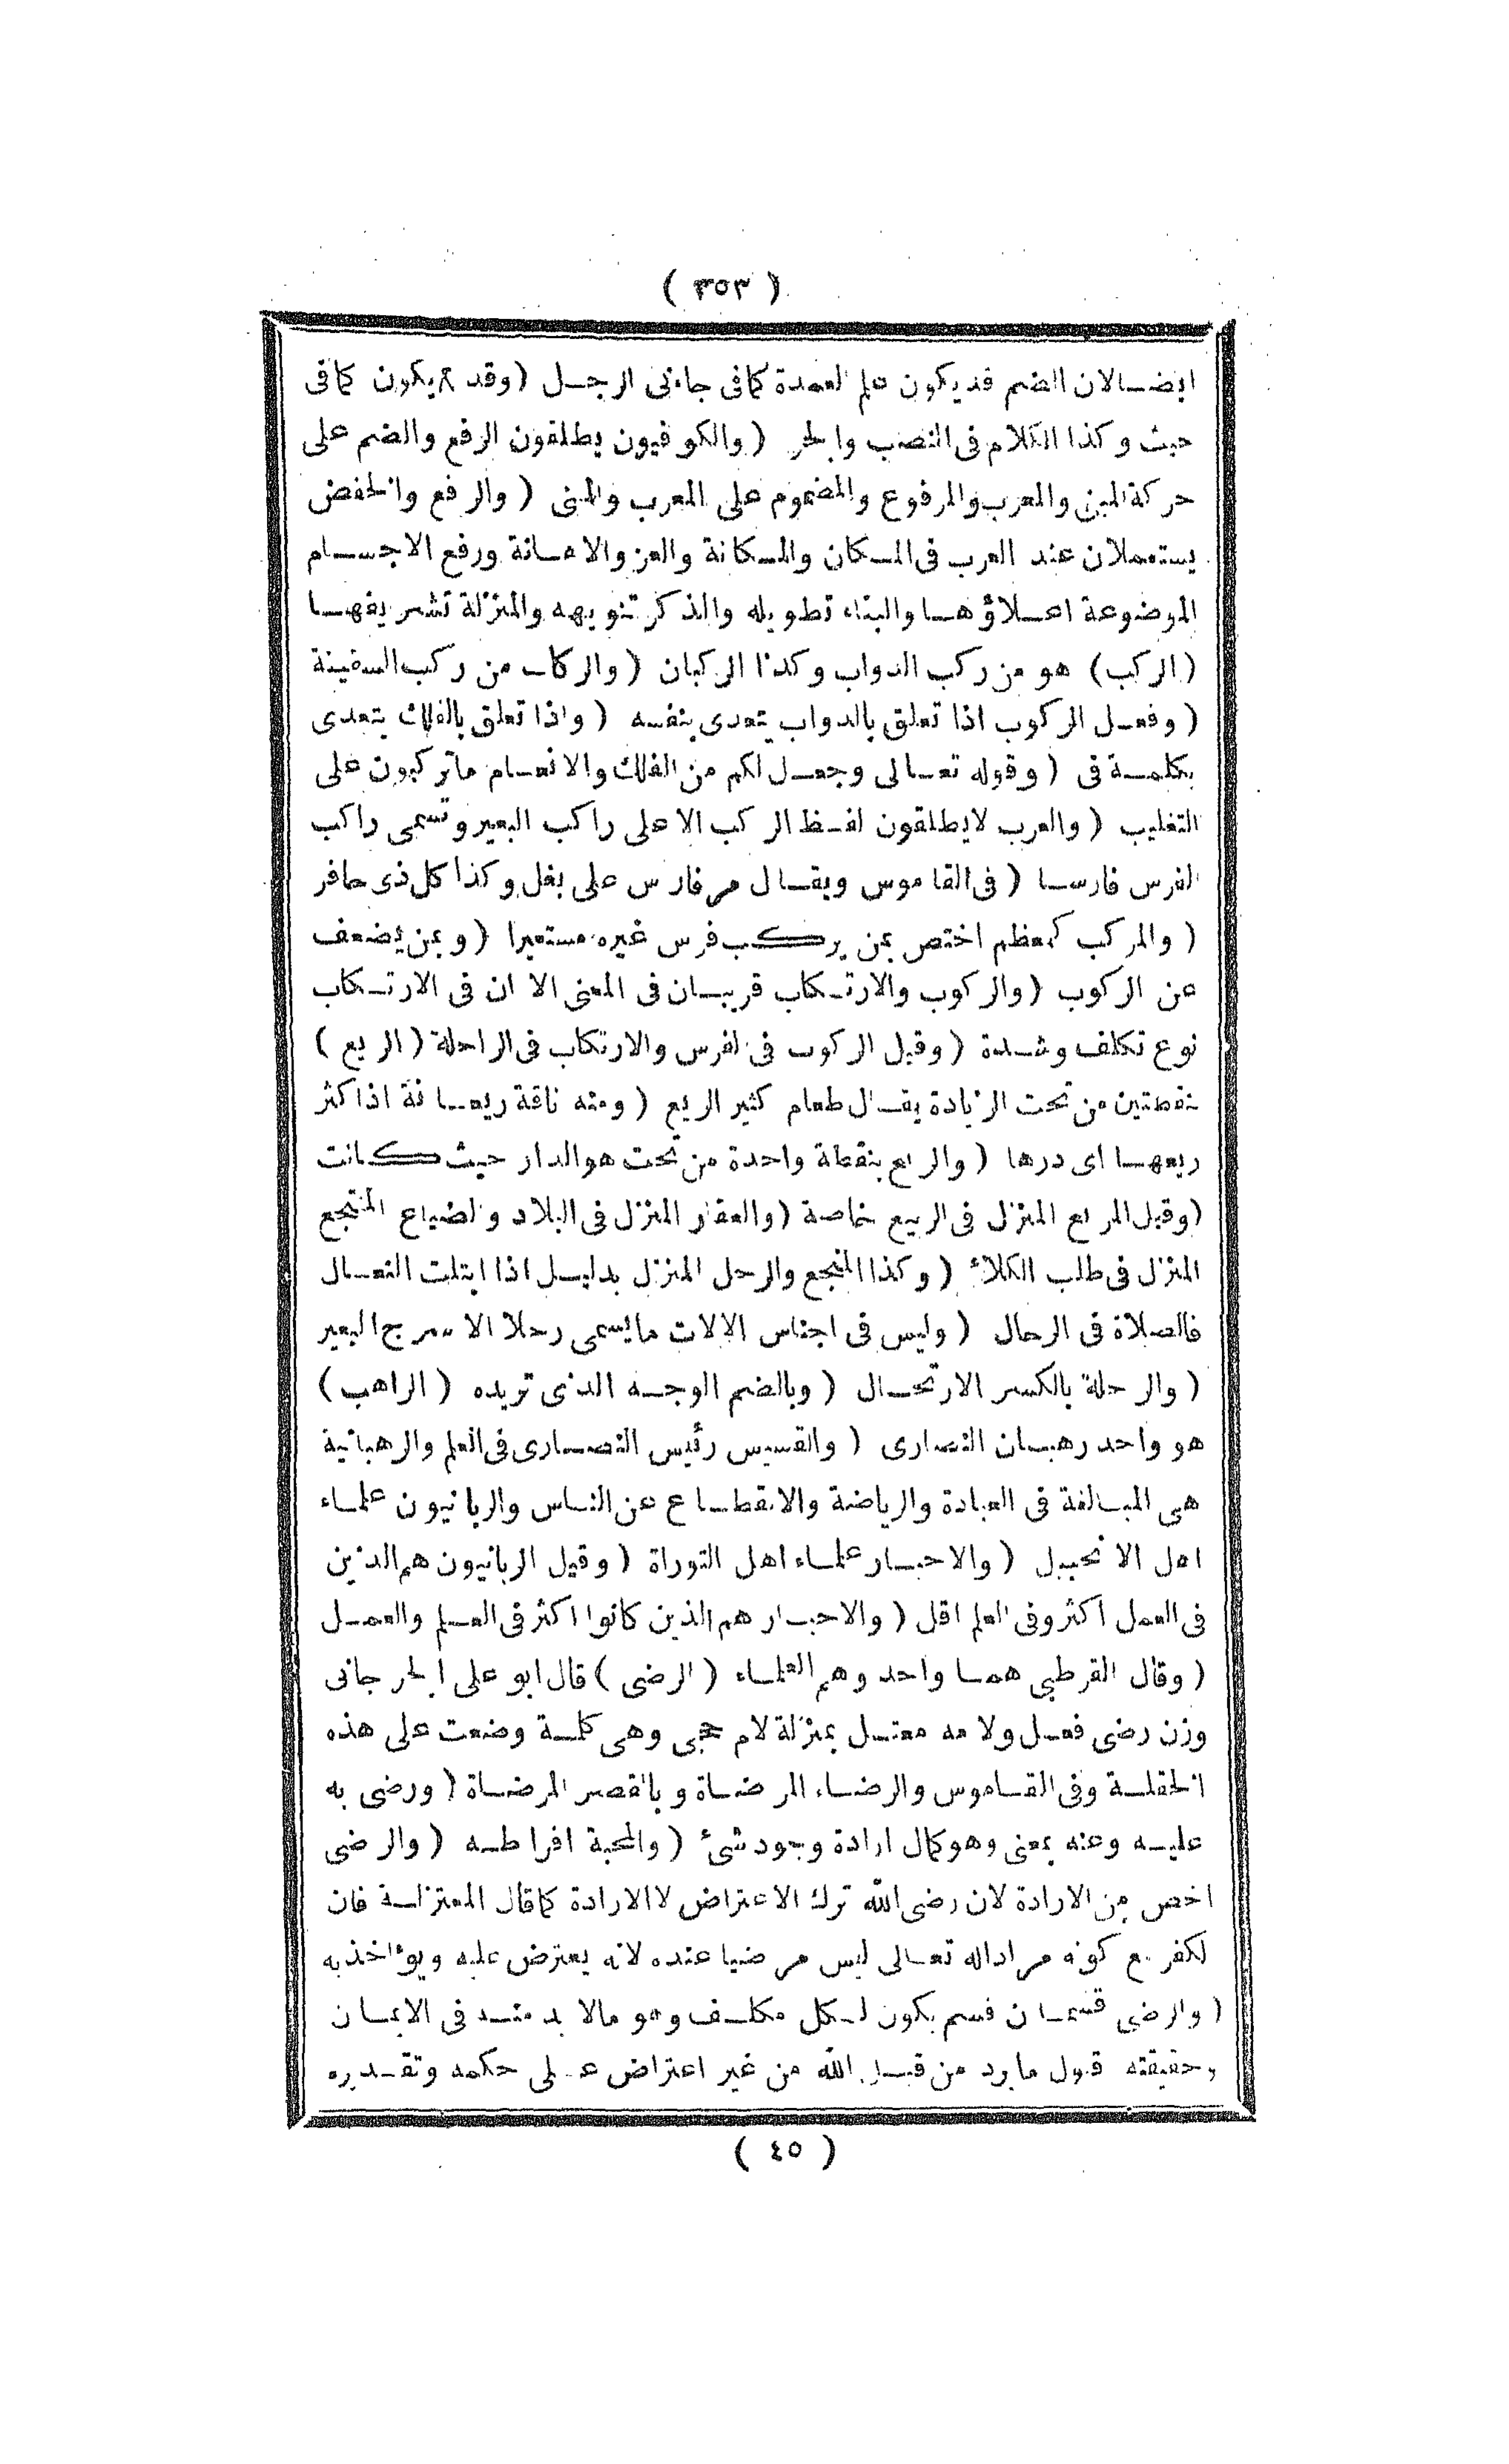 ( ٣٥٣ )
ايضا لان الضم قد يكون علم العمدة كما فى جاءنى الرجل ( وقد لا يكون كما فى
حيث وكذا الكلام فى النصب والجر ( والكوفيون يطلقون الرفع والضم على
حركة المبنى والمعرب والمرفوع والمضموم على المعرب والمبنى ( والرفع والخفض
يستعملان عند العرب فى المكان والمكانة والعز والاهانة ورفع الاجسام
الموضوعة اعلاؤها والبناء تطويله والذكر تنويهه والمنزلة تشريفها
( الركب ) هو من ركب الدواب وكذا الركبان ( والركاب من ركب السفينة
( وفعل الركوب اذا تعلق بالدواب يتعدى بنفسه ( واذا تعلق بالفلك يتعدى
بكلمة فى ( وقوله تعالى وجعل لكم من الفلك والانعام ما تركبون على
التغليب ( والعرب لا يطلقون لفظ الركب الا على راكب البعير وتسمى راكب
الفرس فارسا ( فى القاموس ويقال مر فارس على بغل وكذا كل ذى حافر
( والمركب كمعظم اختص بمن يركب فرس غيره مستعيرا ( وبمن يضعف
عن الركوب ( والركوب والارتكاب قريبان فى المعنى الا ان فى الارتكاب
نوع تكلف وشدة ( وقيل الركوب فى الفرس والارتكاب فى الراحلة ( الريع )
بنقطتين من تحت الزيادة يقال طعام كثير الريع ( ومنه ناقة ريعانة اذا كثر
ريعها اى درها ( والربع بنقطة واحدة من تحت هو الدار حيث كانت
( وقيل المربع المنزل فى الربيع خاصة ( والعقار المنزل فى البلاد والضياع المنتجع
المنزل فى طلب الكلاء ( وكذا النجع والرحل المنزل بدليل اذا ابتلت النعال
فالصلاة فى الرحال ( وليس فى اجناس الالات ما يسمى رحلا الا سرج البعير
( والرحلة بالكسر الارتحال ( وبالضم الوجه الذى تريده ( الراهب )
هو واحد رهبان النصارى ( والقسيس رئيس النصارى فى العلم والرهبانية
هى المبالغة فى العبادة والرياضة والانقطاع عن الناس والربانيون علماء
اهل الانجيل ( والاحبار علماء اهل التوراة ( وقيل الربانيون هم الذين
فى العمل اكثر وفى العلم اقل ( والاحبار هم الذين كانوا اكثر فى العلم والعمل
( وقال القرطبى هما واحد وهم العلماء ( الرضى ) قال ابو على الجرجانى
وزن رضى فعل ولامه معتل بمنزلة لام حجى وهى كلمة وضعت على هذه
الخلقة وفى القاموس والرضاء المرضاة وبالقصر المرضاة ( ورضى به
عليه وعنه بمعنى وهو كمال ارادة وجود شئ ( والمحبة افراطه ( والرضى
اخص من الارادة لان رضى الله ترك الاعتراض لا الارادة كما قال المعتزلة فان
الكفر مع كونه مرادا له تعالى ليس مرضيا عنده لانه يعترض عليه ويؤاخذ به
( والرضى قسمان قسم يكون لكل مكلف وهو مالا بد منه فى الايمان
وحقيقته قبول ما يرد من قبل الله من غير اعتراض على حكمه وتقديره
( ٤٥ )